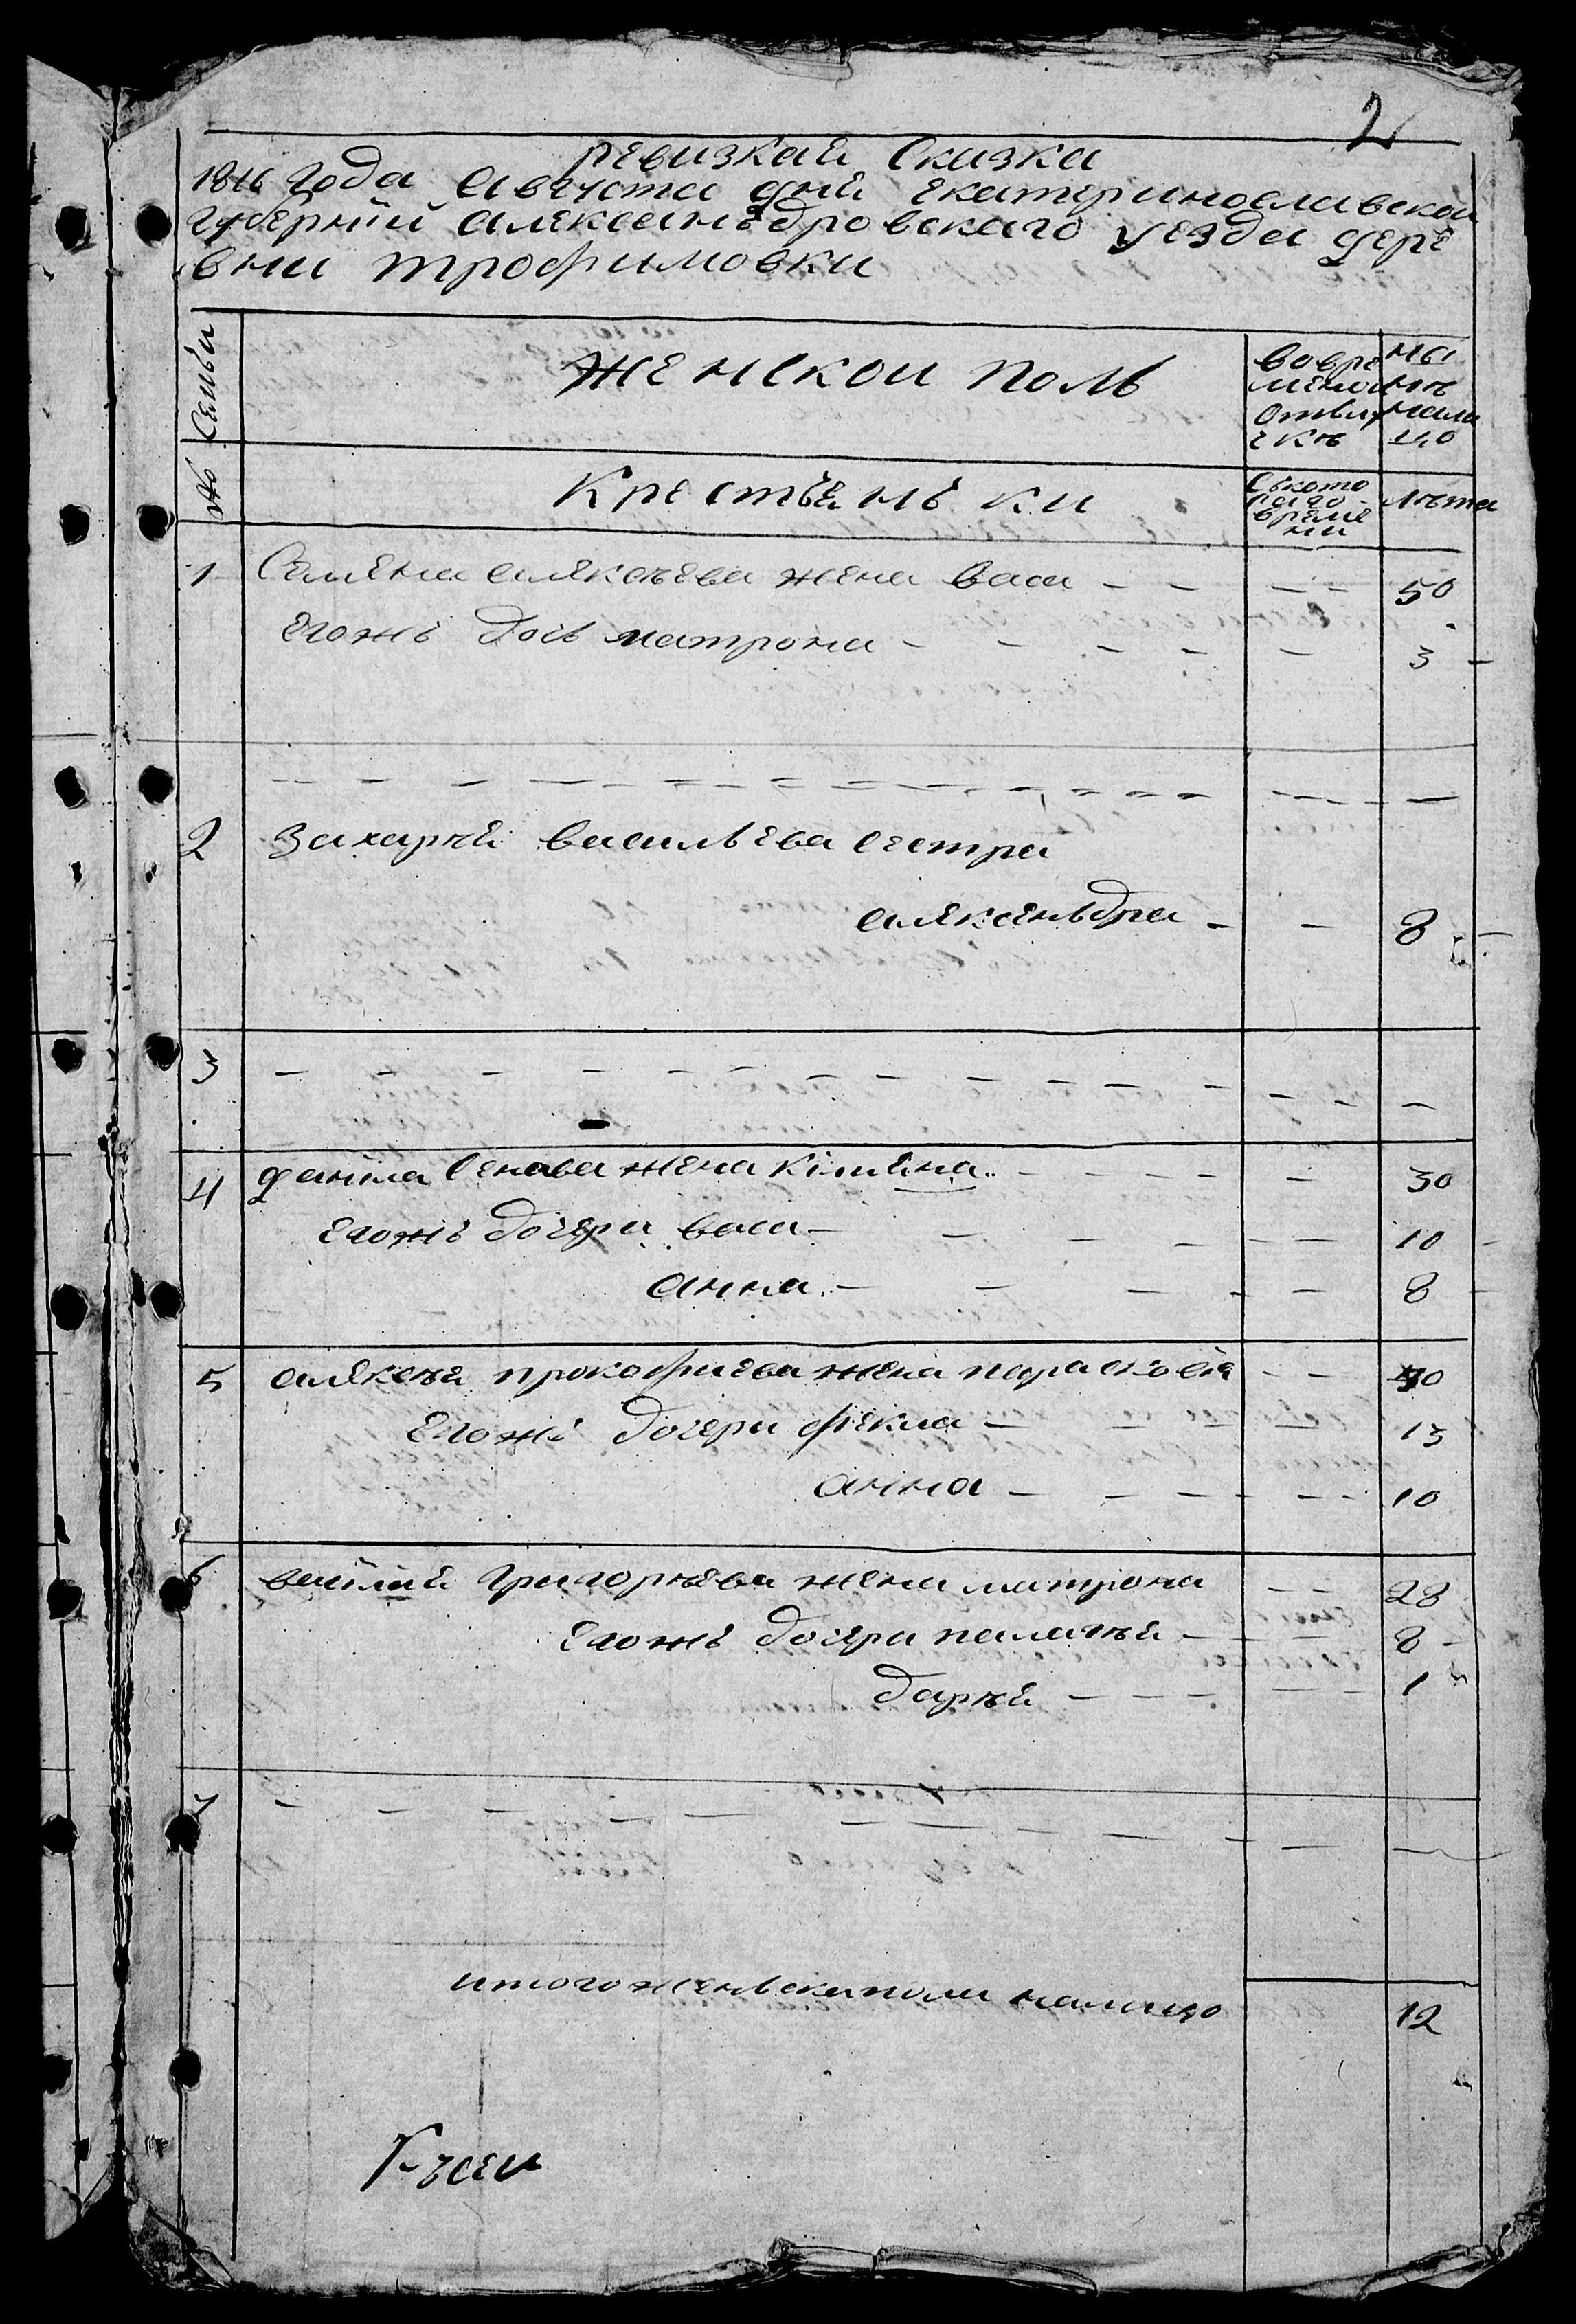 2
ревизкая сказка
1816 года августа дня екатеринославской
губернии александровскаго уезда дере
вни трофимовки
№ Семьи
женскои полъ
вовре
менои
отлу
чкѣ
ны
нѣ
нали
цо
крестьянь ки
Съкото
раго
време
ни
лѣта
1 Семена алексѣева жена васа — — — — 50
Егожъ дочь матрона — — — — — 3
2 Захарѣя васильева сестра
александра — — 8
3
4 данила жена — — — — 30
Егожъ дочери васа — — — — — — 10
анна — — — — — 8
5 алексѣя прокофиева жена парасковія — — 40
Егожъ дочери фекла — — — — — 13
анна — — — — — 10
6 василия григорѣева жена матрона — — 28
Егожъ дочери палагѣя — — — 8
дарѣя — — — — — 1
7
итого женьска пола налицо 12